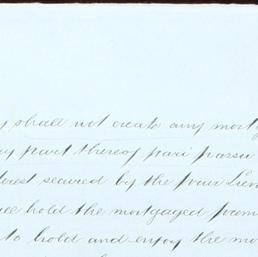 shall not create any mortg
part thereof pari passu
secured by the prior Lien
hold the mortgaged prem
to hold and enjoy the mo